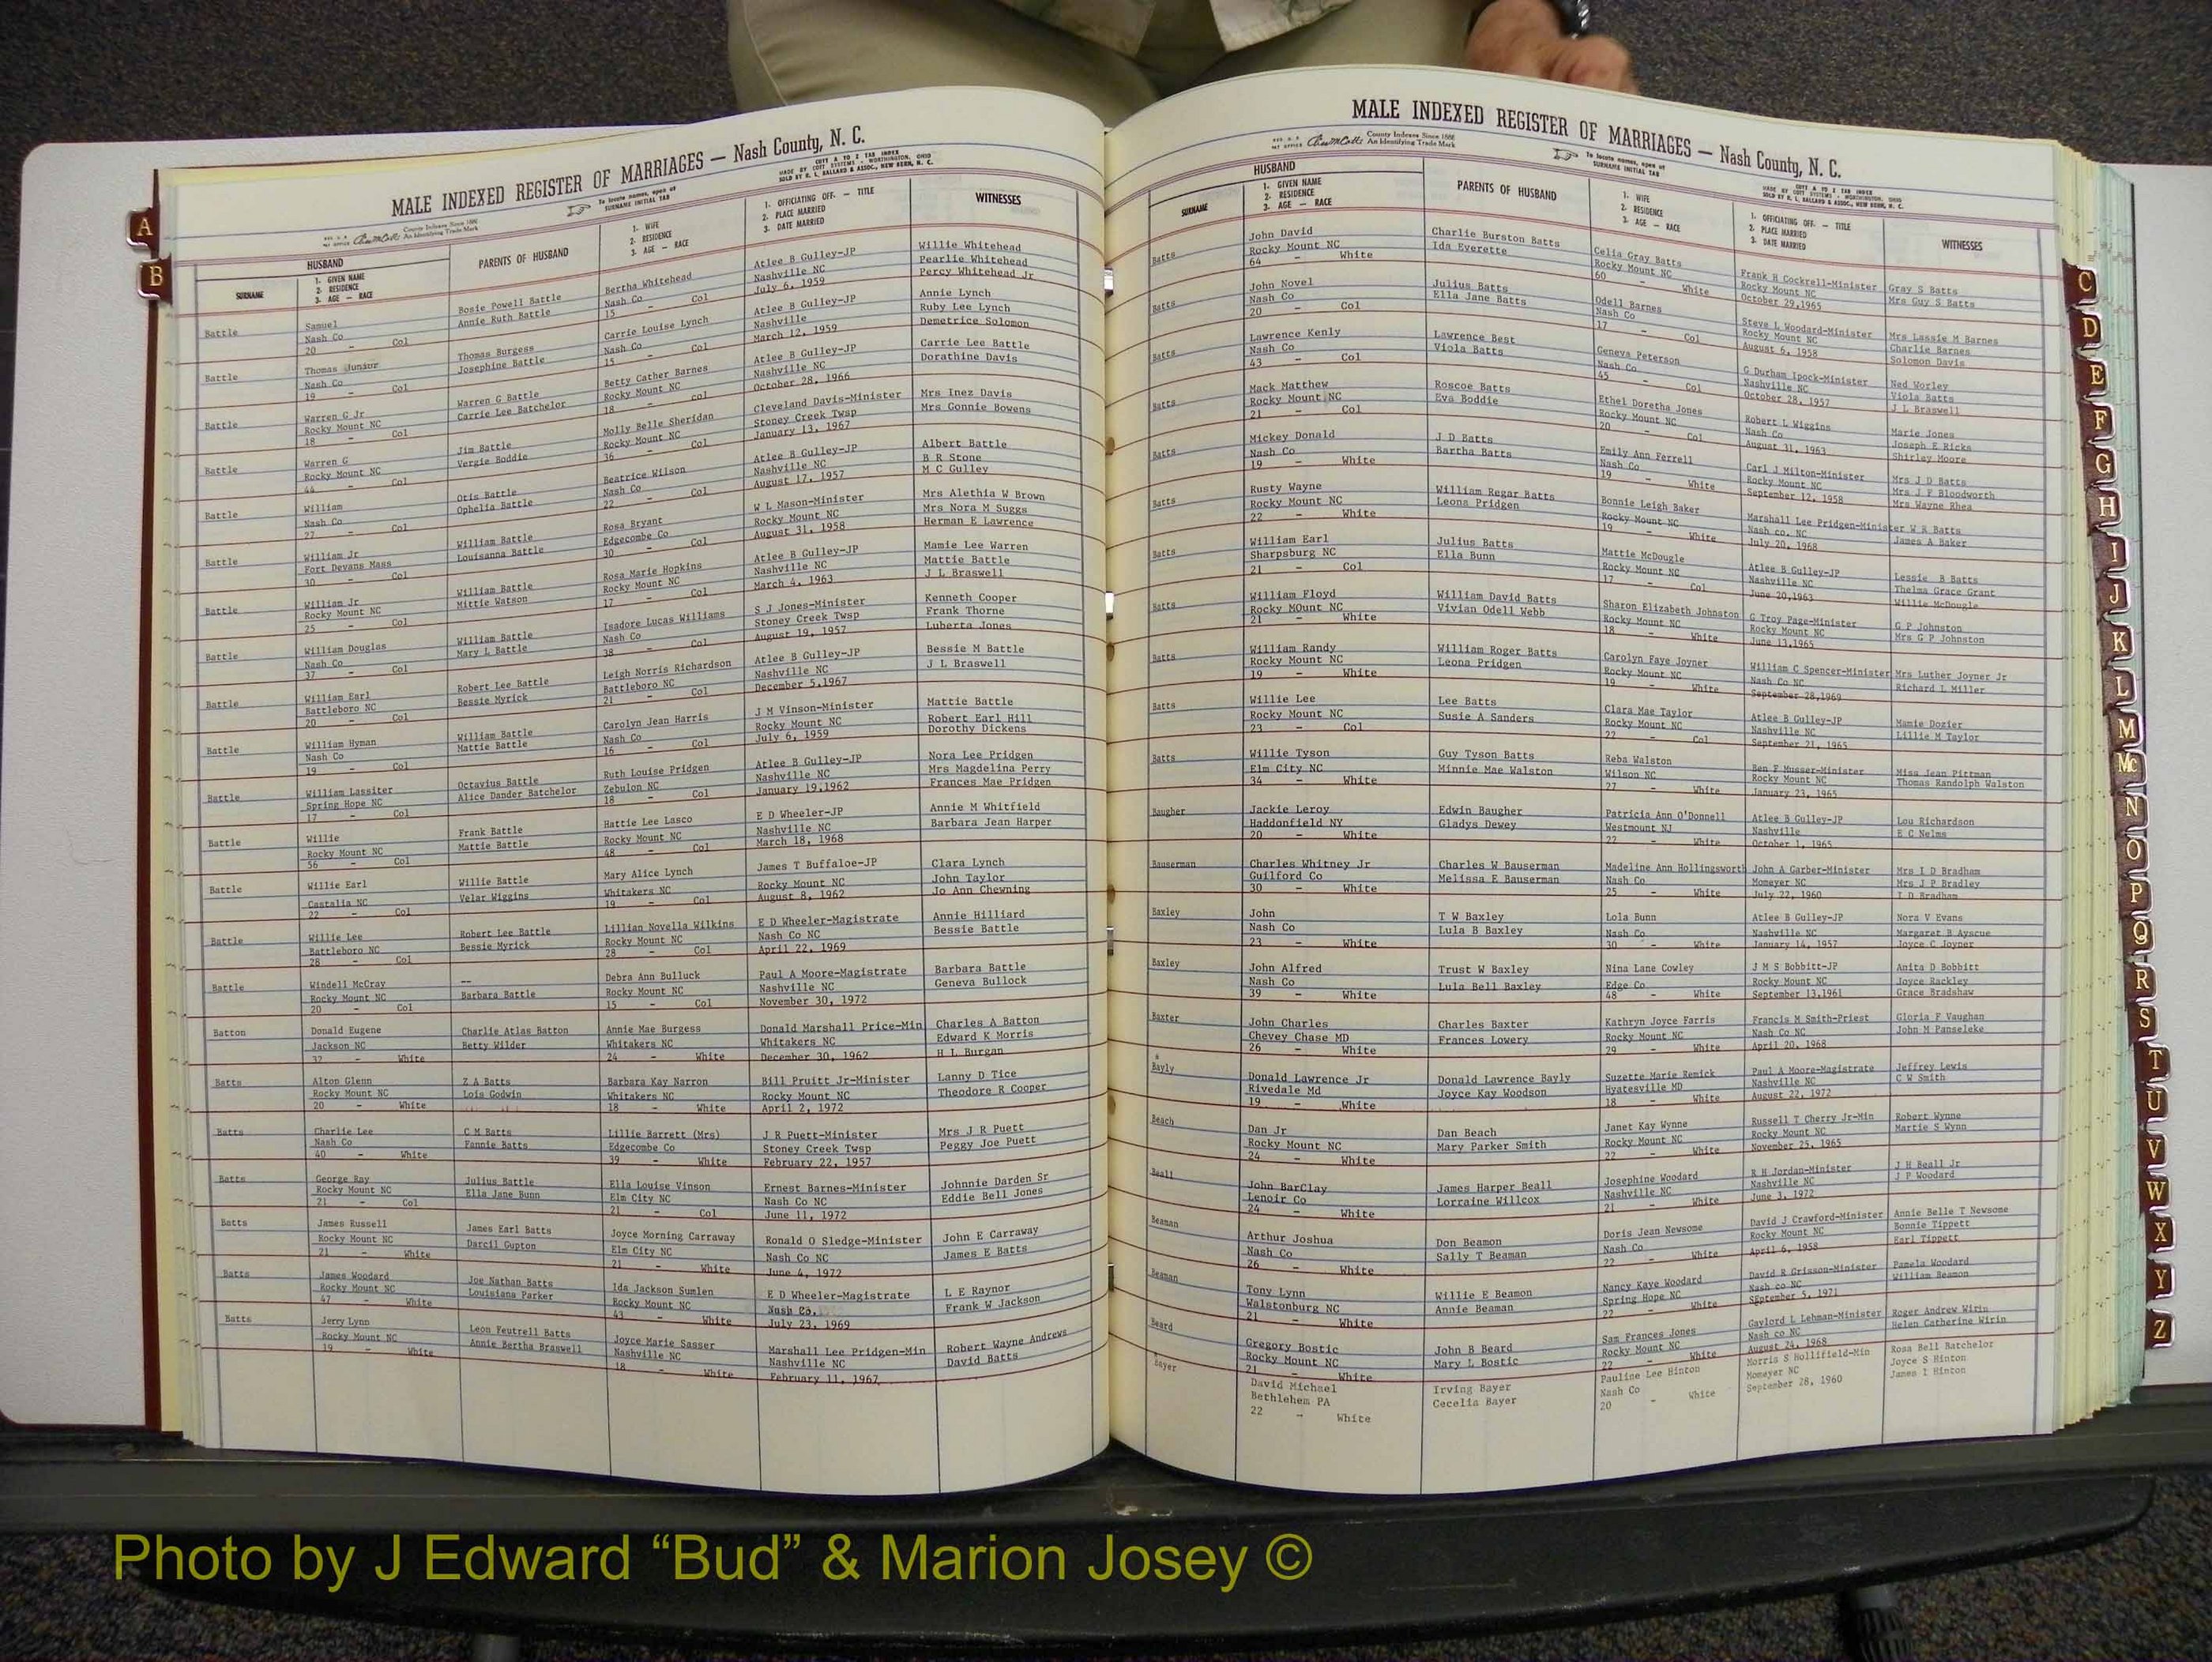 A
B
MALE INDEXED REGISTER OF MARRIAGES — Nash County, N. C.
County Indexes Since 1888
An Identifying Trade Mark
To locate names, open at
SURNAME INITIAL TAB
MADE BY COTT A TO Z TAB INDEX
COTT SYSTEMS - WORTHINGTON, OHIO
SOLD BY R. L. BALLARD & ASSOC., NEW BERN, N. C.
HUSBAND
SURNAME
1. GIVEN NAME
2. RESIDENCE
3. AGE — RACE
PARENTS OF HUSBAND
1. WIFE
2. RESIDENCE
3. AGE — RACE
1. OFFICIATING OFF. — TITLE
2. PLACE MARRIED
3. DATE MARRIED
WITNESSES
Battle Samuel Bosie Powell Battle Bertha Whitehead Atlee B Gulley-JP Willie Whitehead
Nash Co Annie Ruth Battle Nash Co Nashville NC Pearlie Whitehead
20 - Col 15 - Col July 6, 1959 Percy Whitehead Jr
Battle Thomas Junior Thomas Burgess Carrie Louise Lynch Atlee B Gulley-JP Annie Lynch
Nash Co Josephine Battle Nash Co Nashville Ruby Lee Lynch
19 - Col 15 - Col March 12, 1959 Demetrice Solomon
Battle Warren G Jr Warren G Battle Betty Cather Barnes Atlee B Gulley-JP Carrie Lee Battle
Rocky Mount NC Carrie Lee Batchelor Rocky Mount NC Nashville NC Dorathine Davis
18 - Col 18 - col October 28, 1966
Battle Warren G Jim Battle Molly Belle Sheridan Cleveland Davis-Minister Mrs Inez Davis
Rocky Mount NC Vergie Boddie Rocky Mount NC Stoney Creek Twsp Mrs Gonnie Bowens
44 - Col 36 - Col January 13, 1967
Battle William Otis Battle Beatrice Wilson Atlee B Gulley-JP Albert Battle
Nash Co Ophelia Battle Nash Co Nashville NC B R Stone
27 - Col 22 - Col August 17, 1957 M C Gulley
Battle William Jr William Battle Rosa Bryant W L Mason-Minister Mrs Alethia W Brown
Fort Devans Mass Louisanna Battle Edgecombe Co Rocky Mount NC Mrs Nora M Suggs
30 - Col 30 - Col August 31, 1958 Herman E Lawrence
Battle William Jr William Battle Rosa Marie Hopkins Atlee B Gulley-JP Mamie Lee Warren
Rocky Mount NC Mittie Watson Rocky Mount NC Nashville NC Mattie Battle
25 - Col 17 - Col March 4, 1963 J L Braswell
Battle William Douglas William Battle Isadore Lucas Williams S J Jones-Minister Kenneth Cooper
Nash Co Mary L Battle Nash Co Stoney Creek Twsp Frank Thorne
37 - Col 38 - Col August 19, 1957 Luberta Jones
Battle William Earl Robert Lee Battle Leigh Norris Richardson Atlee B Gulley-JP Bessie M Battle
Battleboro NC Bessie Myrick Battleboro NC Nashville NC J L Braswell
20 - Col 21 - Col December 5,1967
Battle William Hyman William Battle Carolyn Jean Harris J M Vinson-Minister Mattie Battle
Nash Co Mattie Battle Nash Co Rocky Mount NC Robert Earl Hill
19 - Col 16 - Col July 6, 1959 Dorothy Dickens
Battle William Lassiter Octavius Battle Ruth Louise Pridgen Atlee B Gulley-JP Nora Lee Pridgen
Spring Hope NC Alice Dander Batchelor Zebulon NC Nashville NC Mrs Magdelina Perry
17 - Col 18 - Col January 19,1962 Frances Mae Pridgen
Battle Willie Frank Battle Hattie Lee Lasco E D Wheeler-JP Annie M Whitfield
Rocky Mount NC Mattie Battle Rocky Mount NC Nashville NC Barbara Jean Harper
56 - Col 48 - Col March 18, 1968
Battle Willie Earl Willie Battle Mary Alice Lynch James T Buffaloe-JP Clara Lynch
Castalia NC Velar Wiggins Whitakers NC Rocky Mount NC John Taylor
22 - Col 19 - Col August 8, 1962 Jo Ann Chewning
Battle Willie Lee Robert Lee Battle Lillian Novella Wilkins E D Wheeler-Magistrate Annie Hilliard
Battleboro NC Bessie Myrick Rocky Mount NC Nash Co NC Bessie Battle
28 - Col 28 - Col April 22, 1969
Battle Windell McCray -- Debra Ann Bulluck Paul A Moore-Magistrate Barbara Battle
Rocky Mount NC Barbara Battle Rocky Mount NC Nashville NC Geneva Bullock
20 - Col 15 - Col November 30, 1972
Batton Donald Eugene Charlie Atlas Batton Annie Mae Burgess Donald Marshall Price-Min Charles A Batton
Jackson NC Betty Wilder Whitakers NC Whitakers NC Edward K Morris
32 - White 24 - White December 30, 1962 H L Burgan
Batts Alton Glenn Z A Batts Barbara Kay Narron Bill Pruitt Jr-Minister Lanny D Tice
Rocky Mount NC Lois Godwin Whitakers NC Rocky Mount NC Theodore R Cooper
20 - White 18 - White April 2, 1972
Batts Charlie Lee C M Batts Lillie Barrett (Mrs) J R Puett-Minister Mrs J R Puett
Nash Co Fannie Batts Edgecombe Co Stoney Creek Twsp Peggy Joe Puett
40 - White 39 - White February 22, 1957
Batts George Ray Julius Battle Ella Louise Vinson Ernest Barnes-Minister Johnnie Darden Sr
Rocky Mount NC Ella Jane Bunn Elm City NC Nash Co NC Eddie Bell Jones
21 - Col 21 - Col June 11, 1972
Batts James Russell James Earl Batts Joyce Morning Carraway Ronald O Sledge-Minister John E Carraway
Rocky Mount NC Darcil Gupton Elm City NC Nash Co NC James E Batts
21 - White 21 - White June 4, 1972
Batts James Woodard Joe Nathan Batts Ida Jackson Sumlen E D Wheeler-Magistrate L E Raynor
Rocky Mount NC Louisiana Parker Rocky Mount NC Nash Co. Frank W Jackson
47 - White 43 - White July 23, 1969
Batts Jerry Lynn Leon Feutrell Batts Joyce Marie Sasser Marshall Lee Pridgen-Min Robert Wayne Andrews
Rocky Mount NC Annie Bertha Braswell Nashville NC Nashville NC David Batts
19 - White 18 - White February 11, 1967
MALE INDEXED REGISTER OF MARRIAGES — Nash County, N. C.
County Indexes Since 1888
An Identifying Trade Mark
To locate names, open at
SURNAME INITIAL TAB
MADE BY COTT A TO Z TAB INDEX
COTT SYSTEMS - WORTHINGTON, OHIO
SOLD BY R. L. BALLARD & ASSOC., NEW BERN, N. C.
HUSBAND
SURNAME
1. GIVEN NAME
2. RESIDENCE
3. AGE — RACE
PARENTS OF HUSBAND
1. WIFE
2. RESIDENCE
3. AGE — RACE
1. OFFICIATING OFF. — TITLE
2. PLACE MARRIED
3. DATE MARRIED
WITNESSES
Batts John David Charlie Burston Batts Celia Gray Batts Frank H Cockrell-Minister Gray S Batts
Rocky Mount NC Ida Everette Rocky Mount NC Rocky Mount NC Mrs Guy S Batts
64 - White 60 - White October 29,1965
Batts John Novel Julius Batts Odell Barnes Steve L Woodard-Minister Mrs Lassie M Barnes
Nash Co Ella Jane Batts Nash Co Rocky Mount NC Charlie Barnes
20 - Col 17 - Col August 6, 1958 Solomon Davis
Batts Lawrence Kenly Lawrence Best Geneva Peterson G Durham Ipock-Minister Ned Worley
Nash Co Viola Batts Nash Co Nashville NC Viola Batts
43 - Col 45 - Col October 28, 1957 J L Braswell
Batts Mack Matthew Roscoe Batts Ethel Doretha Jones Robert L Wiggins Marie Jones
Rocky Mount NC Eva Boddie Rocky Mount NC Nash Co Joseph E Ricks
21 - Col 20 - Col August 31, 1963 Shirley Moore
Batts Mickey Donald J D Batts Emily Ann Ferrell Carl J Milton-Minister Mrs J D Batts
Nash Co Bartha Batts Nash Co Rocky Mount NC Mrs J F Bloodworth
19 - White 19 - White September 12, 1958 Mrs Wayne Rhea
Batts Rusty Wayne William Regar Batts Bonnie Leigh Baker Marshall Lee Pridgen-Minister W R Batts
Rocky Mount NC Leona Pridgen Rocky Mount NC Nash co. NC James A Baker
22 - White 19 - White July 20, 1968
Batts William Earl Julius Batts Mattie McDougle Atlee B Gulley-JP Lessie B Batts
Sharpsburg NC Ella Bunn Rocky Mount NC Nashville NC Thelma Grace Grant
21 - Col 17 - Col June 20,1963 Willie McDougle
Batts William Floyd William David Batts Sharon Elizabeth Johnston G Troy Page-Minister G P Johnston
Rocky MOunt NC Vivian Odell Webb Rocky Mount NC Rocky Mount NC Mrs G P Johnston
21 - White 18 - White June 13,1965
Batts William Randy William Roger Batts Carolyn Faye Joyner William C Spencer-Minister Mrs Luther Joyner Jr
Rocky Mount NC Leona Pridgen Rocky Mount NC Nash Co NC Richard L Miller
19 - White 19 - White September 28,1969
Batts Willie Lee Lee Batts Clara Mae Taylor Atlee B Gulley-JP Mamie Dozier
Rocky Mount NC Susie A Sanders Rocky Mount NC Nashville NC Lillie M Taylor
23 - Col 22 - Col September 21, 1965
Batts Willie Tyson Guy Tyson Batts Reba Walston Ben F Musser-Minister Miss Jean Pittman
Elm City NC Minnie Mae Walston Wilson NC Rocky Mount NC Thomas Randolph Walston
34 - White 27 - White January 23, 1965
Baugher Jackie Leroy Edwin Baugher Patricia Ann O'Donnell Atlee B Gulley-JP Lou Richardson
Haddonfield NY Gladys Dewey Westmount NJ Nashville E C Nelms
20 - White 22 - White October 1, 1965
Bauserman Charles Whitney Jr Charles W Bauserman Madeline Ann Hollingsworth John A Garber-Minister Mrs I D Bradham
Guilford Co Melissa E Bauserman Nash Co Momeyer NC Mrs J P Bradley
30 - White 25 - White July 22, 1960 I D Bradham
Baxley John T W Baxley Lola Bunn Atlee B Gulley-JP Nora V Evans
Nash Co Lula B Baxley Nash Co Nashville NC Margaret B Ayscue
23 - White 30 - White January 14, 1957 Joyce C Joyner
Baxley John Alfred Trust W Baxley Nina Lane Cowley J M S Bobbitt-JP Anita D Bobbitt
Nash Co Lula Bell Baxley Edge Co Rocky Mount NC Joyce Rackley
39 - White 48 - White September 13,1961 Grace Bradshaw
Baxter John Charles Charles Baxter Kathryn Joyce Farris Francis M Smith-Priest Gloria F Vaughan
Chevey Chase MD Frances Lowery Rocky Mount NC Nash Co NC John M Panseleke
26 - White 29 - White April 20, 1968
Bayly Donald Lawrence Jr Donald Lawrence Bayly Suzette Marie Remick Paul A Moore-Magistrate Jeffrey Lewis
Rivedale Md Joyce Kay Woodson Hyatesville MD Nashville NC C W Smith
19 - White 18 - White August 22, 1972
Beach Dan Jr Dan Beach Janet Kay Wynne Russell T Cherry Jr-Min Robert Wynne
Rocky Mount NC Mary Parker Smith Rocky Mount NC Rocky Mount NC Martie S Wynn
24 - White 22 - White November 25, 1965
Beall John BarClay James Harper Beall Josephine Woodard R H Jordan-Minister J H Beall Jr
Lenoir Co Lorraine Willcox Nashville NC Nashville NC J P Woodard
24 - White 21 - White June 3, 1972
Beaman Arthur Joshua Don Beamon Doris Jean Newsome David J Crawford-Minister Annie Belle T Newsome
Nash Co Sally T Beaman Nash Co Rocky Mount NC Bonnie Tippett
26 - White 22 - White April 6, 1958 Earl Tippett
Beaman Tony Lynn Willie E Beamon Nancy Kaye Woodard David R Grisson-Minister Pamela Woodard
Walstonburg NC Annie Beaman Spring Hope NC Nash co NC William Beamon
21 - White 22 - White SEptember 5, 1971
Beard Gregory Bostic John B Beard Sam Frances Jones Gaylord L Lehman-Minister Roger Andrew Wirin
Rocky Mount NC Mary L Bostic Rocky Mount NC Nash co NC Helen Catherine Wirin
21 - White 22 - White August 24, 1968
Bayer David Michael Irving Bayer Pauline Lee Hinton Morris S Hollifield-Min Rosa Bell Batchelor
Bethlehem PA Cecelia Bayer Nash Co Momeyer NC Joyce S Hinton
22 - White 20 - White September 28, 1960 James I Hinton
C
D
E
F
G
H
I
J
K
L
M
Mc
N
O
P
Q
R
S
T
U
V
W
X
Y
Z
Photo by J Edward “Bud” & Marion Josey ©